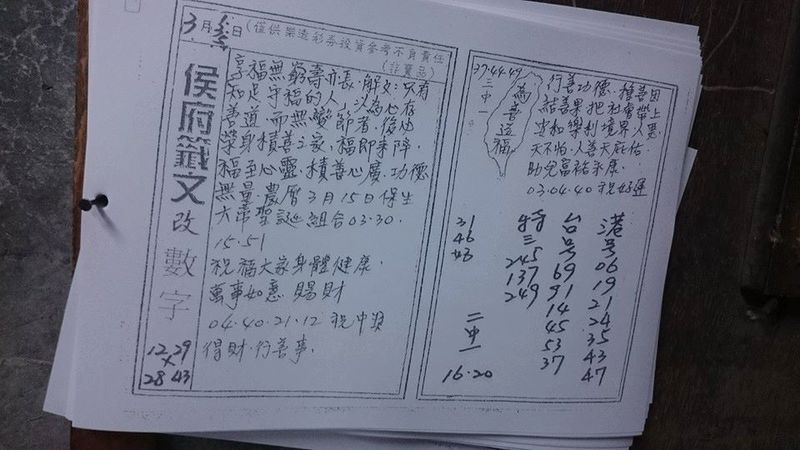 3月 日(僅供樂透彩券投資參考不負責任
(非賣品)
侯府籤文改數字
12 × 29
28 43
享福無窮壽亦長,解文:只有
知足守福的人,以為心存
善道,而無變節者,後也
榮身積善之家,福即來降
福至心靈.積善心廣.功德
無量.農曆3月15日保生
大帝聖誕組合03.30.
15.51
祝福大家身體健康,
萬事如意 賜財
04.40.21.12 祝中獎
得財.行善事.
37.44.49
三中一
為善造福
行善功德,種善因
結善果把社會帶上
天不怕.人善天庇佑
03.04.40 祝好運
港号
06
19
21
24
35
43
47
台号
69
91
14
45
53
37
特三
245
137
249
31
46
43
二中一
16.20